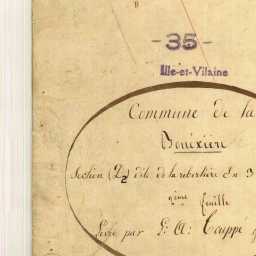 - 35 -
Ille-et-Vilaine
Commune de la
Bouëxière
Section (Z2) dite de la
En 3
2ème feuille
Levée par P. A. Couppé